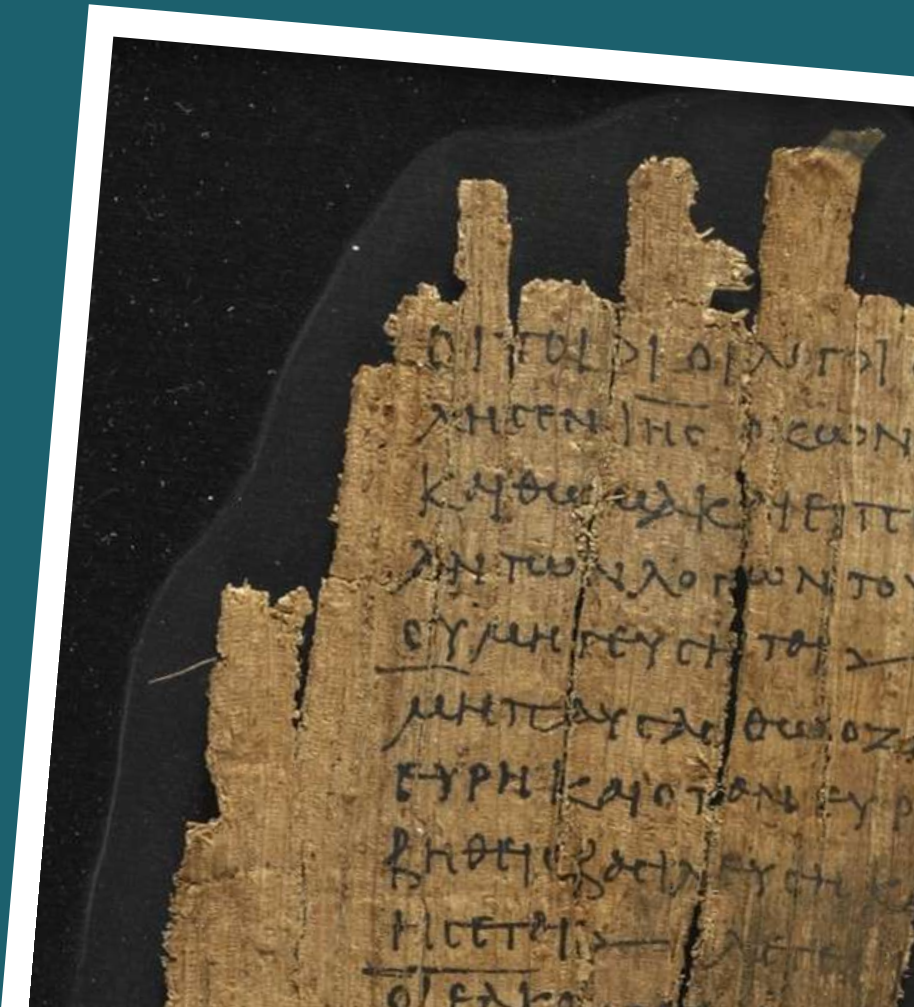 ΟΙΤΟΙΟΙΟΙΛΟΓΟΙ
ΛΗϹΕΝΙΗϹΟΖΩΝ
ΚΑΙΘΩΜΑΚΑΙΕΙΠΕ
ΑΝΤΩΝΛΟΓΩΝΤΟΥ
ΟΥΜΗΓΕΥϹΗΤΑΙ
ΜΗΠΑΥϹΑϹΘΩΟΖ
ΕΥΡΗΚΑΙΟΤΑΝΕΥΡ
ΒΗΘΕΙϹΒΑϹΙΛΕΥϹΗΚΑ
ΗϹΕΤΑΙ ΛΕΓΕΙ
ΟΙΕΛΚΟ